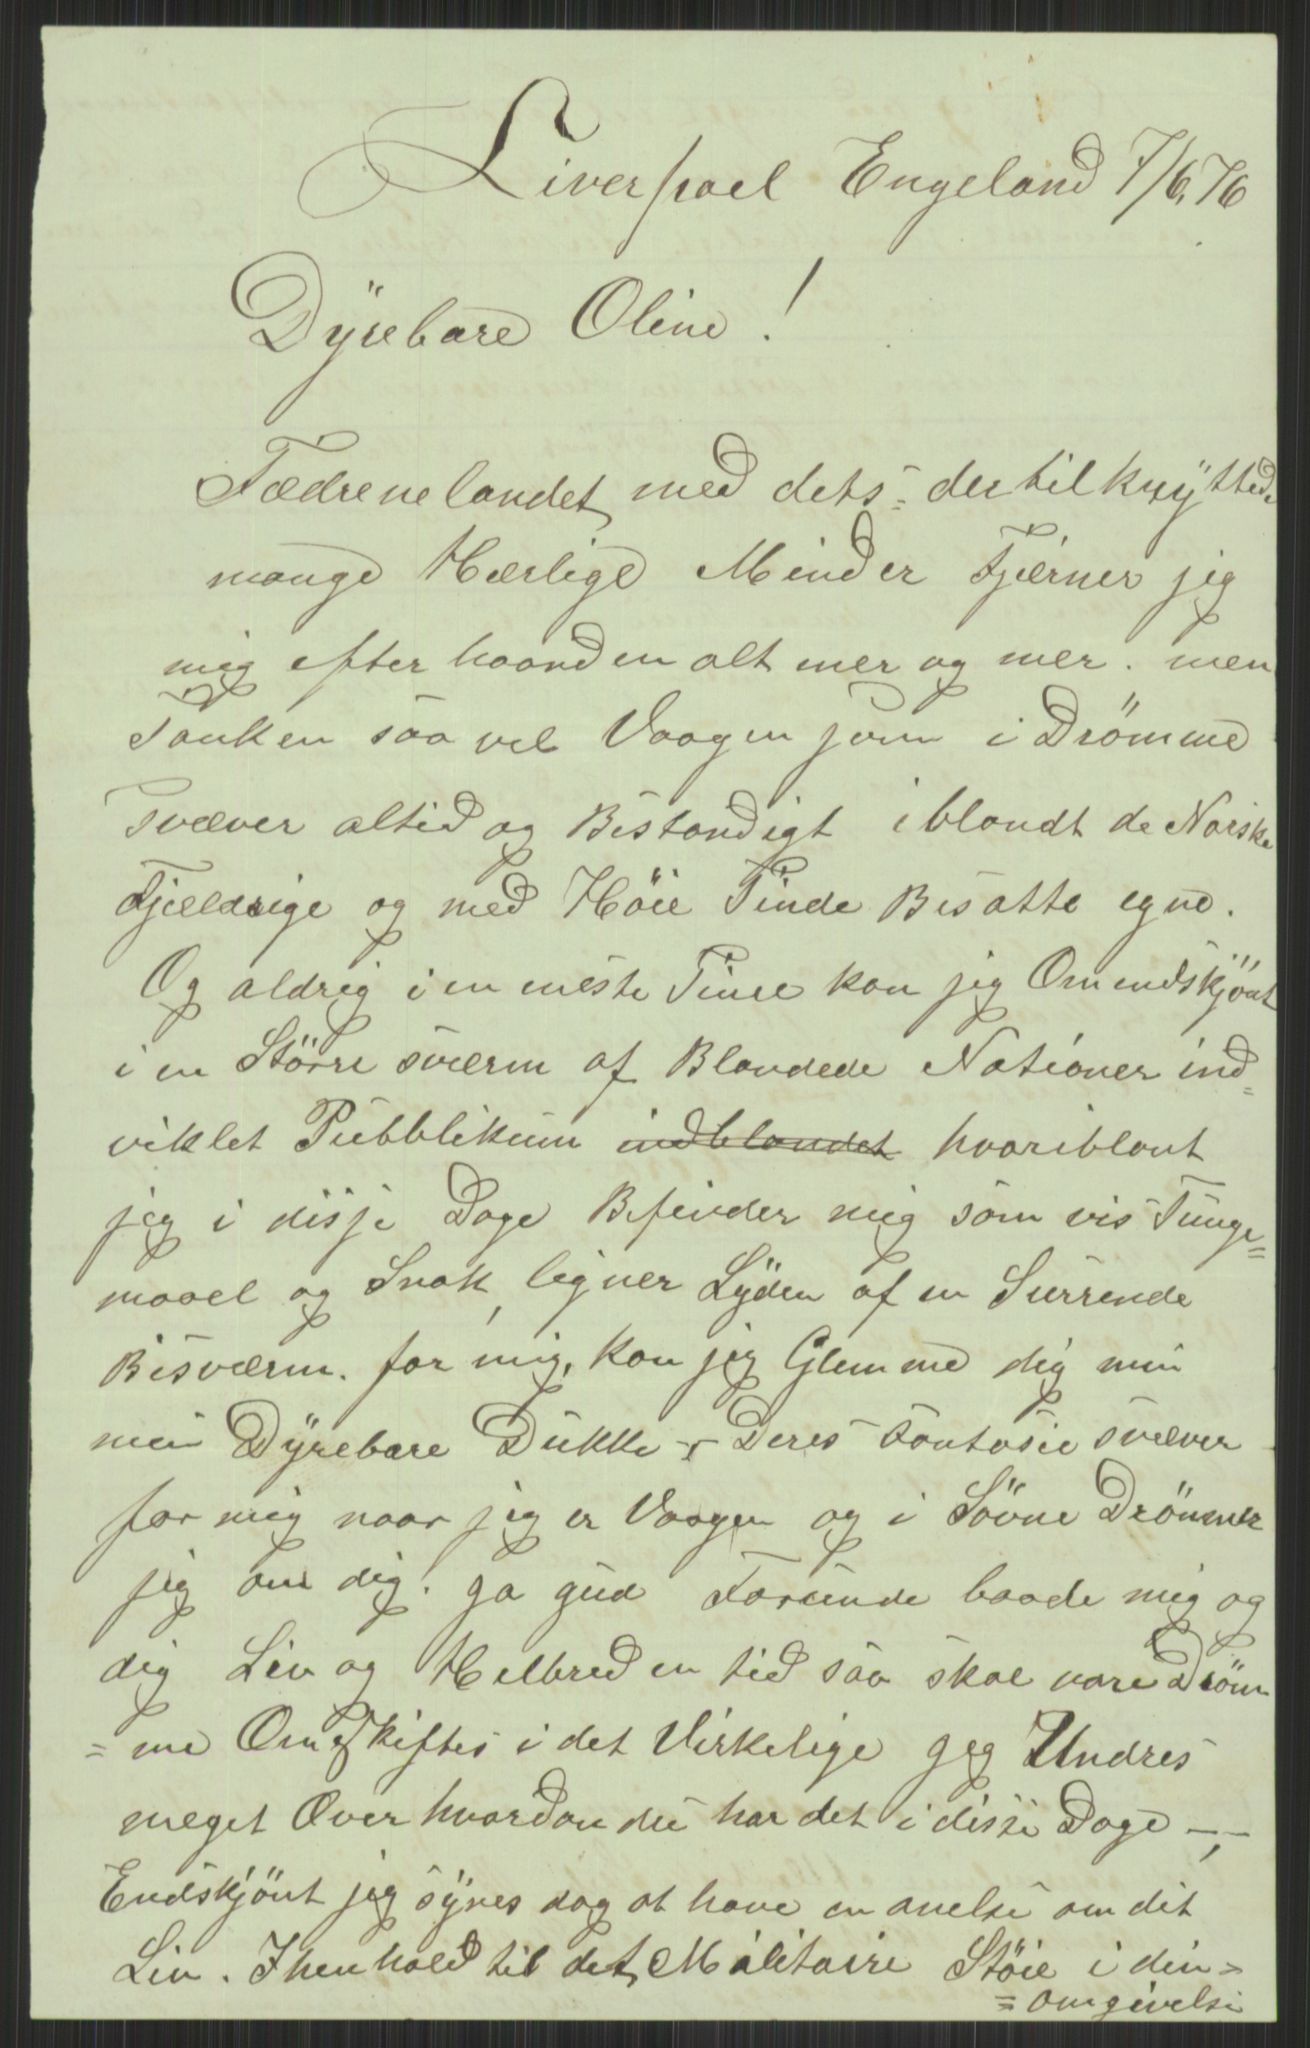 Liverpael Engeland 7/6.76
Dÿrebare Oline!
Fædrenelandet, med dets dertilknÿttede
mange Hærlige Minder Fjærner jeg
mig efterhaanden alt mer og mer. men
Tanken saa vel Vaagen som i Drömme
svæver altid og Bestandigt iblandt de Norske
Fjeldrige og med Höie Tinde Besatte egne.
Og aldrig i en meste Time kan jeg Omendskjönt
i en Större sværm af Blandede Nationer ind=
viklet Pubblikum indblandet hvoriblant
jeg i disse Dage Befinder mig som vis Tunge=
maael og Snak, ligner Lÿden af en Surrende
Bisværm. for mig, kan jeg Glemme dig min
min Dÿrebare Dukke - Deres Fantasie svæver
for mig naar jeg er Vaagen og i Sövne Drömmer
jeg om dig. ja gud Forunde baade mig og
dig Liv og Helbred en tid saa skal vare Dröm
=me Omskiftes i det Virkelige jeg Undres
meget Over hvordan du har det i disse Dage -,-
Endskjönt jeg sÿnes dog at have en anelse om dit
Liv. I henhold til det, Militaire Stöie i din=
=omgivelse